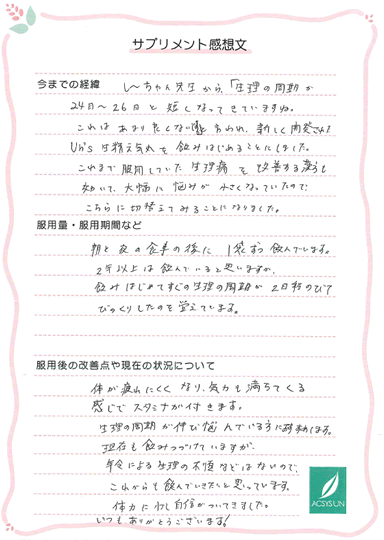 サプリメント感想文
今までの経緯 しーちゃん先生から、「生理の周期が
24日〜26日と短くなってきていますね。
これはあまり良くない と言われ、新しく開発された
Uh's 生精元気 を飲みはじめることにしました。
これまで服用していた生理痛を改善する漢方も
効いて、大幅に悩みが小さくなっていたので、
こちらに切替えてみることになりました。
服用量・服用期間など
朝と夜の食事の後に1袋ずつ飲んでいます。
2年以上は飲んでいると思いますが、
飲みはじめてすぐの生理の周期が2日程のびて
びっくりしたのを覚えています。
服用後の改善点や現在の状況について
体が疲れにくくなり、気力も満ちてくる
感じでスタミナが付きます。
生理の周期が伸び悩んでいる方に お勧めします。
現在も飲みつづけていますが、
年令による生理の不順などはないので、
これからも飲んでいきたいと思っています。
体力に 自信がついてきました。
いつもありがとうございます!
ACSYSUN